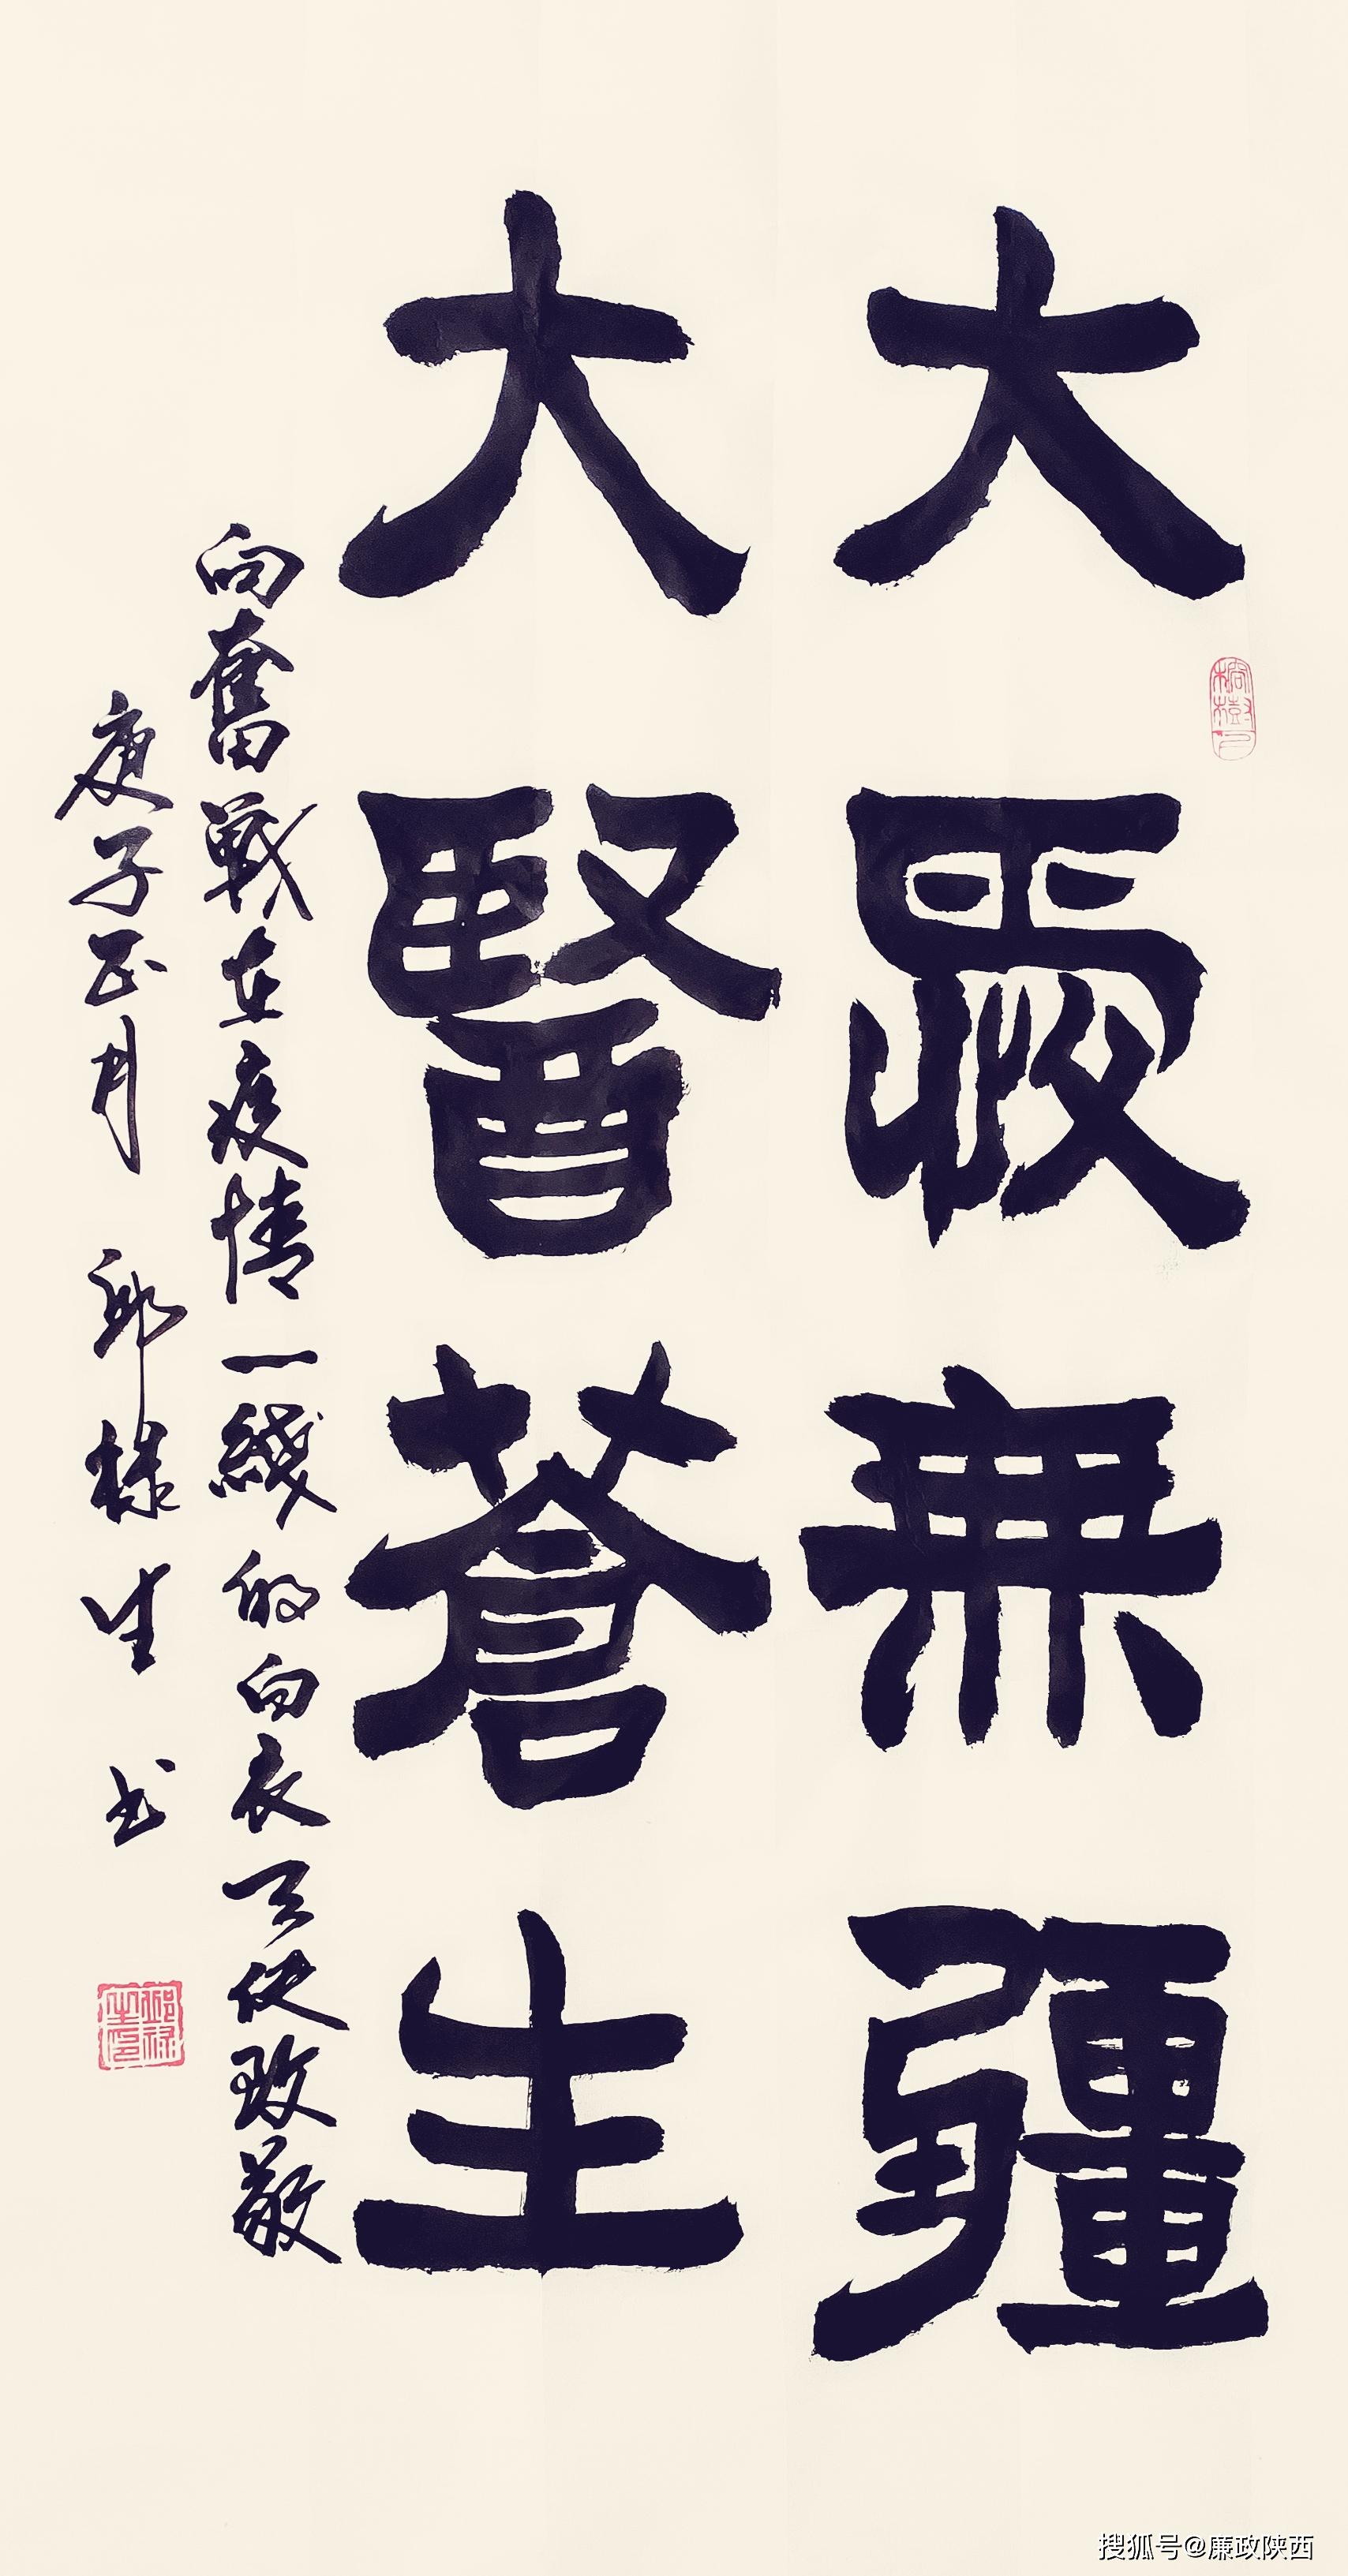 大愛無疆
大醫蒼生
向奮戰在疫情一綫的白衣天使致敬
庚子正月 邱祿生书
搜狐号@廉政陕西